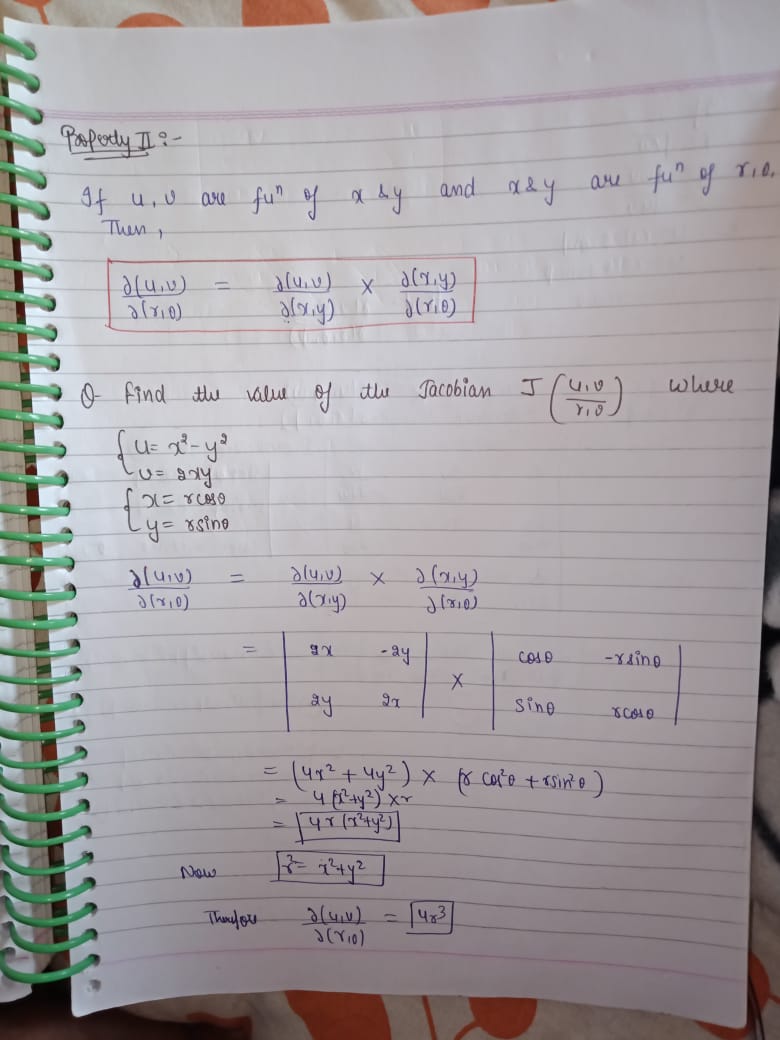 Property II :-
If u, v are fuⁿ of x & y and x & y are fuⁿ of r, θ.
Then,
∂(u,v)/∂(r,θ) = ∂(u,v)/∂(x,y) × ∂(x,y)/∂(r,θ)
Q Find the value of the Jacobian J (u,v/r,θ) where
{ u = x² - y²
v = 2xy
{ x = rcosθ
y = rsinθ
∂(u,v)/∂(r,θ) = ∂(u,v)/∂(x,y) × ∂(x,y)/∂(r,θ)
= | 2x -2y | × | cosθ -rsinθ |
| 2y 2x | | sinθ rcosθ |
= (4x² + 4y²) × (r cos²θ + rsin²θ)
= 4(x²+y²) × r
= 4r(x²+y²)
Now r² = x²+y²
Therefore ∂(u,v)/∂(r,θ) = 4r³